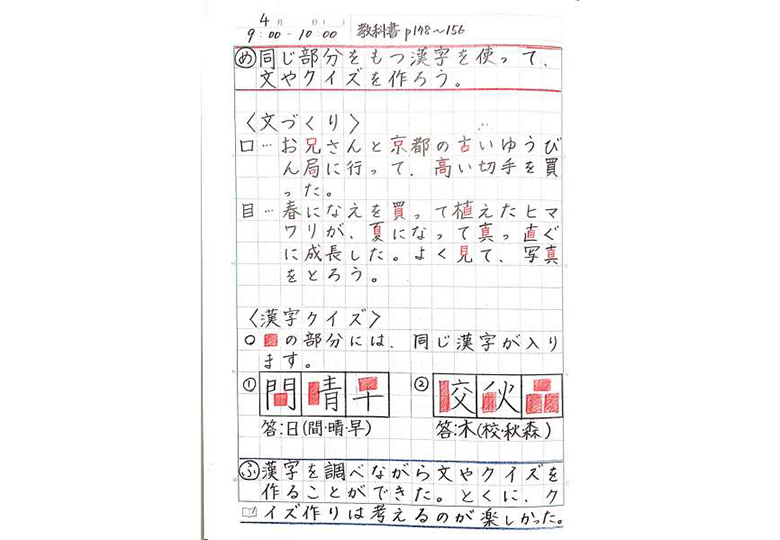 4月 日( )
9:00-10:00 教科書p148～156
め 同じ部分をもつ漢字を使って、
文やクイズを作ろう。
〈文づくり〉
口…お兄さんと京都の古いゆうび
ん局に行って、高い切手を買
った。
目…春になえを買って植えたヒマ
ワリが、夏になって真っ直ぐ
に成長した。よく見て、写真
をとろう。
〈漢字クイズ〉
○ の部分には、同じ漢字が入り
ます。
① 門 青 十 ② 交 火
答:日(間・晴・早) 答:木(校・秋・森)
ふ 漢字を調べながら文やクイズを
作ることができた。とくに、ク
イズ作りは考えるのが楽しかった。